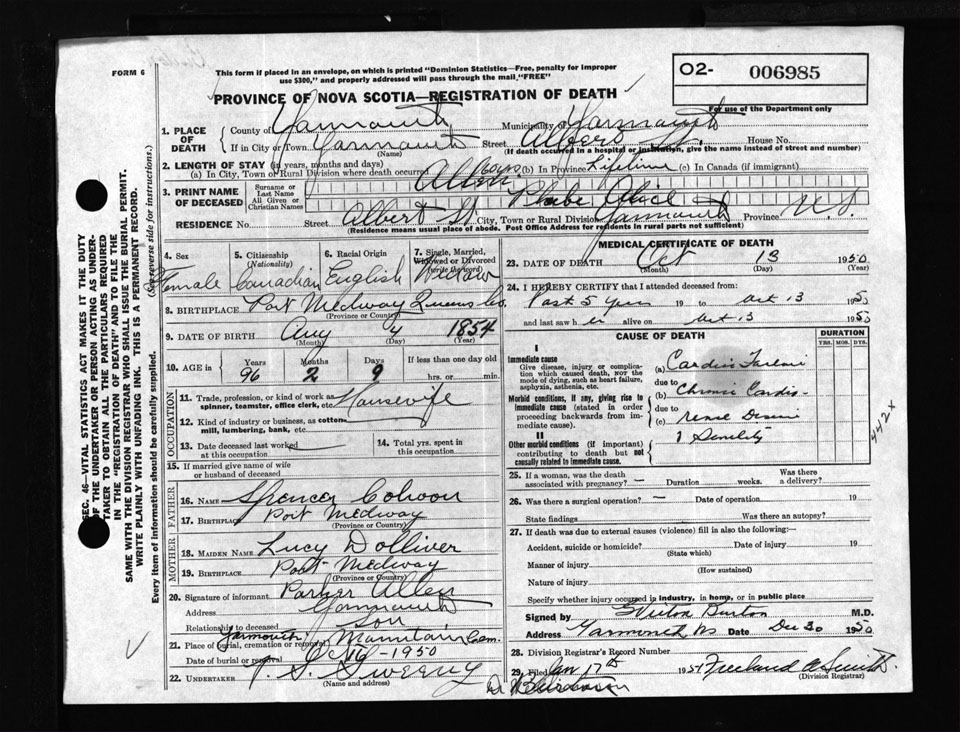 FORM 6
This form if placed in an envelope, on which is printed "Dominion Statistics—Free, penalty for improper
use $300," and properly addressed will pass through the mail, "FREE"
O2- 006985
For use of the Department only
PROVINCE OF NOVA SCOTIA—REGISTRATION OF DEATH
1. PLACE OF DEATH
County of Yarmouth Municipality of Yarmouth
If in City or Town Yarmouth Street Albert St. House No.
(Name) (If death occurred in a hospital or institution, give the name instead of street and number)
2. LENGTH OF STAY (in years, months and days)
(a) In City, Town or Rural Division where death occurred (b) In Province Lifetime (c) In Canada (if immigrant)
3. PRINT NAME OF DECEASED
Surname or Last Name Allen
All Given or Christian Names Phebe Alice
RESIDENCE No. Street Albert St. City, Town or Rural Division Yarmouth Province N. S.
(Residence means usual place of abode. Post Office Address for residents in rural parts not sufficient)
4. Sex 5. Citizenship (Nationality) 6. Racial Origin 7. Single, Married, Widowed or Divorced (write the word)
Female Canadian English Widow
8. BIRTHPLACE Port Medway Queens Co.
(Province or Country)
9. DATE OF BIRTH Aug 4 1854
(Month) (Day) (Year)
10. AGE in Years Months Days If less than one day old
96 2 9 hrs. or min.
OCCUPATION
11. Trade, profession, or kind of work as spinner, teamster, office clerk, etc. Housewife
12. Kind of industry or business, as cotton mill, lumbering, bank, etc.
13. Date deceased last worked at this occupation
14. Total yrs. spent in this occupation
15. If married give name of wife or husband of deceased
FATHER
16. NAME Spencer Cohoon
17. BIRTHPLACE Port Medway
(Province or Country)
MOTHER
18. MAIDEN NAME Lucy Dolliver
19. BIRTHPLACE Port Medway
(Province or Country)
20. Signature of informant Parker Allen
Address Yarmouth
Relationship to deceased Son
21. Place of burial, cremation or removal Yarmouth Mountain Cem.
Date of burial or removal Oct 16 - 1950
22. UNDERTAKER V. S. Sweeny
(Name and address)
MEDICAL CERTIFICATE OF DEATH
23. DATE OF DEATH Oct 13 1950
(Month) (Day) (Year)
24. I HEREBY CERTIFY that I attended deceased from:
Past 5 yrs 19 to Oct 13 1950
and last saw h er alive on Oct 13 1950
CAUSE OF DEATH
DURATION
YRS. MOS. DYS.
I
Immediate cause
Give disease, injury or complication which caused death, not the mode of dying, such as heart failure, asphyxia, asthenia, etc.
(a) Cardiac Failure
due to
Morbid conditions, if any, giving rise to immediate cause (stated in order proceeding backwards from immediate cause).
(b) Chronic Cardio-
due to
(c) renal Disease
II
Other morbid conditions (if important) contributing to death but not causally related to immediate cause.
1 Senility
442X
25. If a woman, was the death associated with pregnancy? — Duration weeks. Was there a delivery?
26. Was there a surgical operation? — Date of operation 19
State findings Was there an autopsy?
27. If death was due to external causes (violence) fill in also the following:—
Accident, suicide or homicide? Date of injury 19
(State which)
Manner of injury
(How sustained)
Nature of injury
Specify whether injury occurred in industry, in home, or in public place
Signed by Burton M.D.
Address Yarmouth NS Date Dec 30 1950
28. Division Registrar's Record Number
29. Filed Jan 17th 1951 Freeland A Smith
(Division Registrar)
SEC. 46—VITAL STATISTICS ACT MAKES IT THE DUTY
OF THE UNDERTAKER OR PERSON ACTING AS UNDER-
TAKER TO OBTAIN ALL THE PARTICULARS REQUIRED
IN THE "REGISTRATION OF DEATH" AND TO FILE THE
SAME WITH THE DIVISION REGISTRAR WHO SHALL ISSUE THE BURIAL PERMIT.
WRITE PLAINLY WITH UNFADING INK. THIS IS A PERMANENT RECORD.
Every item of Information should be carefully supplied. (See reverse side for instructions.)